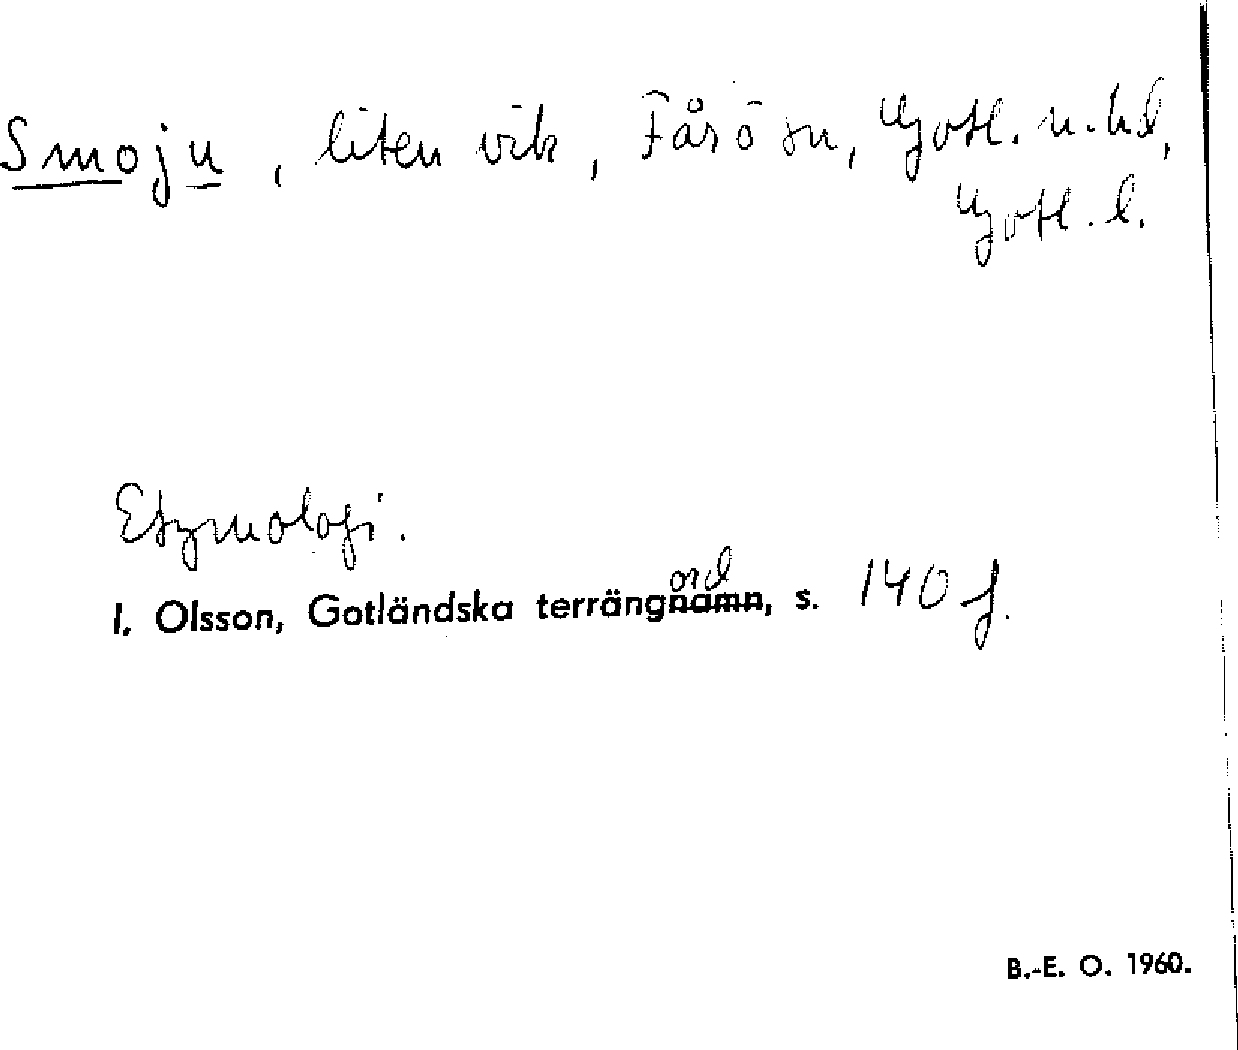 Smoju, liten vik, Fårö sn, Gotl. n. hd,
Gotl. l.
Etymologi.
ord
I. Olsson, Gotländska terrängnamn, s. 140 f.
B.-E. O. 1960.